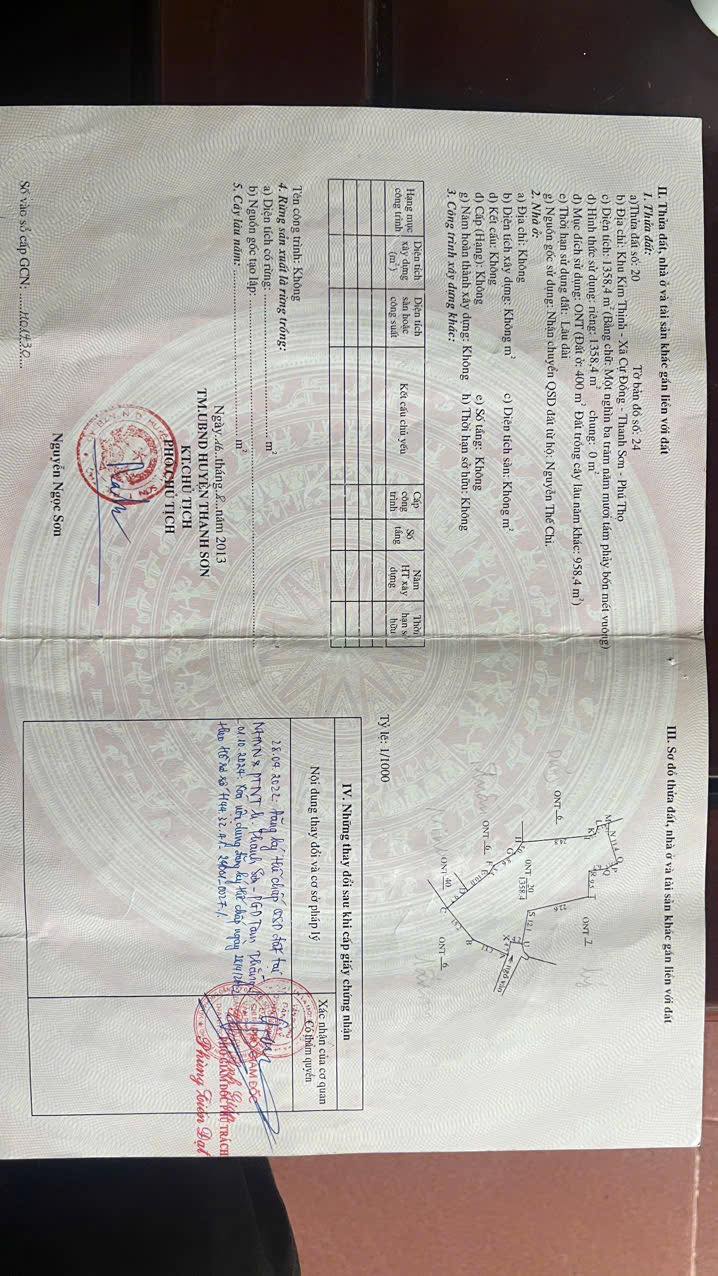 II. Thửa đất, nhà ở và tài sản khác gắn liền với đất
1. Thửa đất:
a)Thửa đất số: 20 Tờ bản đồ số: 24
b) Địa chỉ: Khu Kim Thịnh - Xã Cự Đồng - Thanh Sơn - Phú Thọ
c) Diện tích: 1358,4 m² (Bằng chữ: Một nghìn ba trăm năm mươi tám phảy bốn mét vuông)
d) Hình thức sử dụng: riêng: 1358,4 m² chung: 0 m²
đ) Mục đích sử dụng: ONT (Đất ở: 400 m² Đất trồng cây lâu năm khác: 958,4 m²)
e) Thời hạn sử dụng đất: Lâu dài
g) Nguồn gốc sử dụng: Nhận chuyển QSD đất từ hộ: Nguyễn Thế Chi.
2. Nhà ở:
a) Địa chỉ: Không
b) Diện tích xây dựng: Không m² c) Diện tích sàn: Không m²
d) Kết cấu: Không
đ) Cấp (Hạng): Không e) Số tầng: Không
g) Năm hoàn thành xây dựng: Không h) Thời hạn sở hữu: Không
3. Công trình xây dựng khác:
Hạng mục công trình Diện tích xây dựng (m²) Diện tích sàn hoặc công suất Kết cấu chủ yếu Cấp công trình Số tầng Năm HT xây dựng Thời hạn sở hữu
Tên công trình: Không
4. Rừng sản xuất là rừng trồng:
a) Diện tích có rừng: m²
b) Nguồn gốc tạo lập:
5. Cây lâu năm: m²
Ngày 16 tháng 8 năm 2013
TM.UBND HUYỆN THANH SƠN
KT.CHỦ TỊCH
PHÓ CHỦ TỊCH
Nguyễn Ngọc Sơn
Số vào sổ cấp GCN:
III. Sơ đồ thửa đất, nhà ở và tài sản khác gắn liền với đất
ONT 6
ONT 7
ONT 20
1358.4
ONT 6
ONT 40
ONT 6
Tỷ lệ: 1/1000
IV. Những thay đổi sau khi cấp giấy chứng nhận
Nội dung thay đổi và cơ sở pháp lý
Xác nhận của cơ quan
có thẩm quyền
28.04.2022. Đăng ký thế chấp QSD đất tại
NHNN & PTNT h. Thanh Sơn - PGD
01.10.2024. Xóa nội dung đăng ký thế chấp ngày
theo hồ sơ số
GIÁM ĐỐC
PHÓ GIÁM ĐỐC PHỤ TRÁCH
Phùng Tiến Đạt